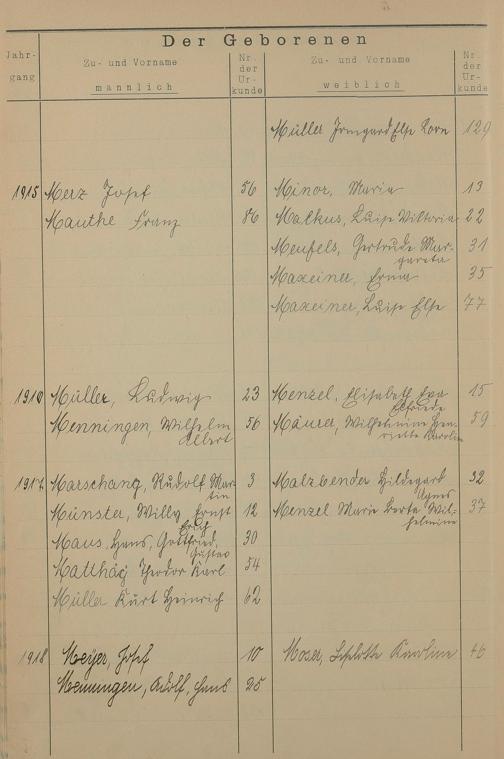 Der Geborenen
Jahr-gang Zu- und Vorname männlich Nr. der Ur-kunde Zu- und Vorname weiblich Nr. der Ur-kunde
Müller Irmgard Else 129
1915 Merz Josef 56 Minor, Maria 13
Mauthe Franz 86 Malkus, Luise Viktoria 22
Meufels, Gertrude Mar-
gareta 31
Maxeiner, Erna 35
Maxeiner, Luise Else 77
1916 Müller, Ludwig 23 Menzel, Elisabeth Eva
Elfriede 15
Menningen, Wilhelm
Albert 56 Mäurer, Wilhelmine Hen-
riette Karolin 59
1917 Marschang, Rudolf Mar-
tin 3 Malzbender Hildegart
Agnes 32
Münster, Willy Ernst
Erich 12 Menzel Maria Berta Wil-
helmine 37
Maus, Hans, Gottfried,
Gustav 30
Matthäy Theodor Karl 54
Müller Kurt Heinrich 62
1918 Meyer, Josef 10 Moser, Karoline 46
Menningen, Adolf, Hans 25